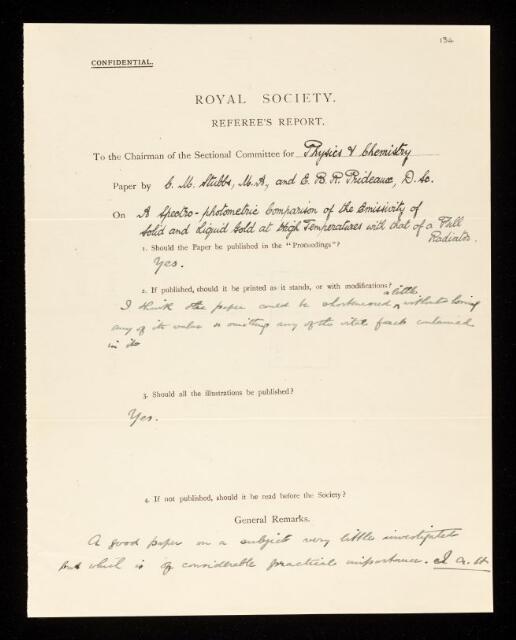 134
CONFIDENTIAL.
ROYAL SOCIETY.
REFEREE'S REPORT.
To the Chairman of the Sectional Committee for Physics & Chemistry
Paper by C. M. Stubbs, M.A, and E. B. R. Prideaux, D.Sc.
On A Spectro-photometric Comparison of the Emissivity of
Solid and Liquid Gold at High Temperatures with that of a Full
Radiator.
1. Should the Paper be published in the "Proceedings"?
Yes.
2. If published, should it be printed as it stands, or with modifications?
a little
I think the paper could be shortened without losing
any of its value or omitting any of the vital facts contained
in it
3. Should all the illustrations be published?
Yes.
4. If not published, should it be read before the Society?
General Remarks.
A good paper on a subject very little investigated
and which is of considerable practical importance.